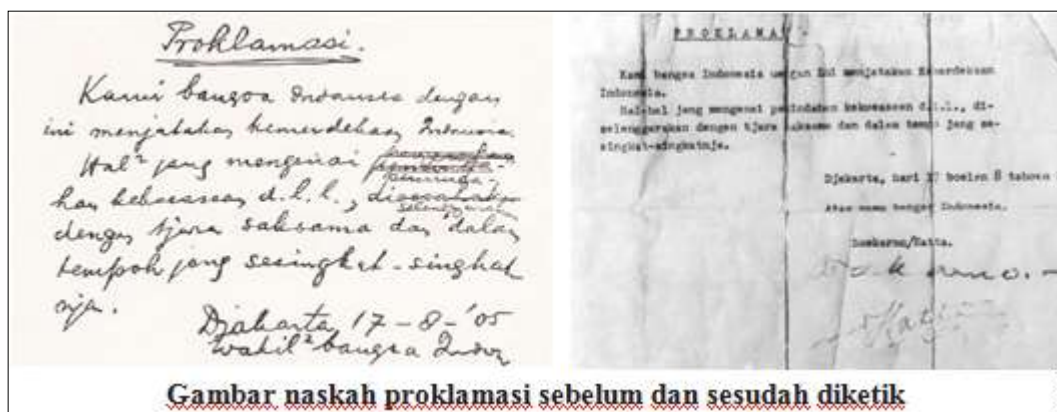 Proklamasi.
Kami bangsa Indonesia dengan
ini menjatakan kemerdekaan Indonesia.
Hal² jang mengenai
han kekoeasaan d.l.l.,
dengan tjara saksama dan dalam
tempoh jang sesingkat-singkat
nja.
Djakarta, 17-8-'05
Wakil² bangsa Indon
PROKLAMA
Kami bangsa Indonesia dengan ini menjatakan Kemerdekaan
Indonesia.
Hal-hal jang mengenai pemindahan kekoeasaan d.l.l., di-
selenggarakan dengan tjara saksama dan dalam tempo jang se-
singkat-singkatnja.
Djakarta, hari 17 boelan 8 tahoen
Atas nama bangsa Indonesia.
Soekarno/Hatta.
Gambar naskah proklamasi sebelum dan sesudah diketik